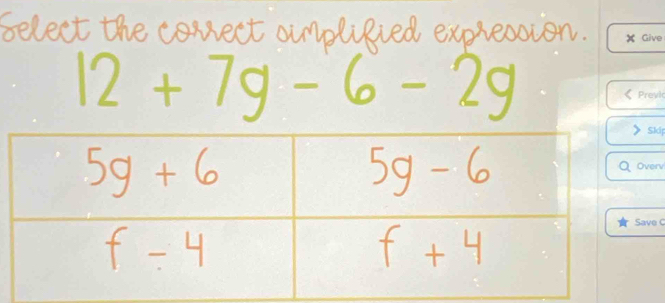 Select the correct simplified expression.
12 + 7g - 6 - 2g
5g + 6
5g - 6
f - 4
f + 4
Give
Skip
Save